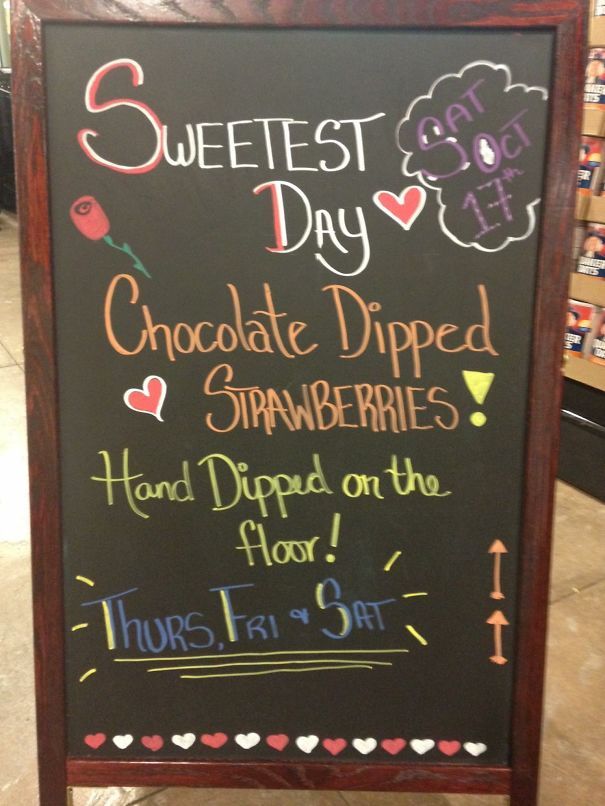 SWEETEST
DAY
SAT
OCT
17th
Chocolate Dipped
STRAWBERRIES!
Hand Dipped on the
floor!
THURS, FRI & SAT